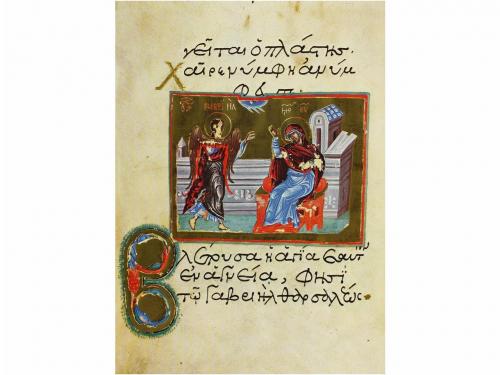 γεῖται ὁ πλάστης·
Χαῖρε νύμφη ἀνύμ
ΓΑΒΡΙΗΛ
ΜΡ ΘΥ
Βλέπουσα ἡ ἁγία ἑαυτὴν
ἐν ἁγνεία, φησὶ
τῷ Γαβριὴλ θαρσαλέως